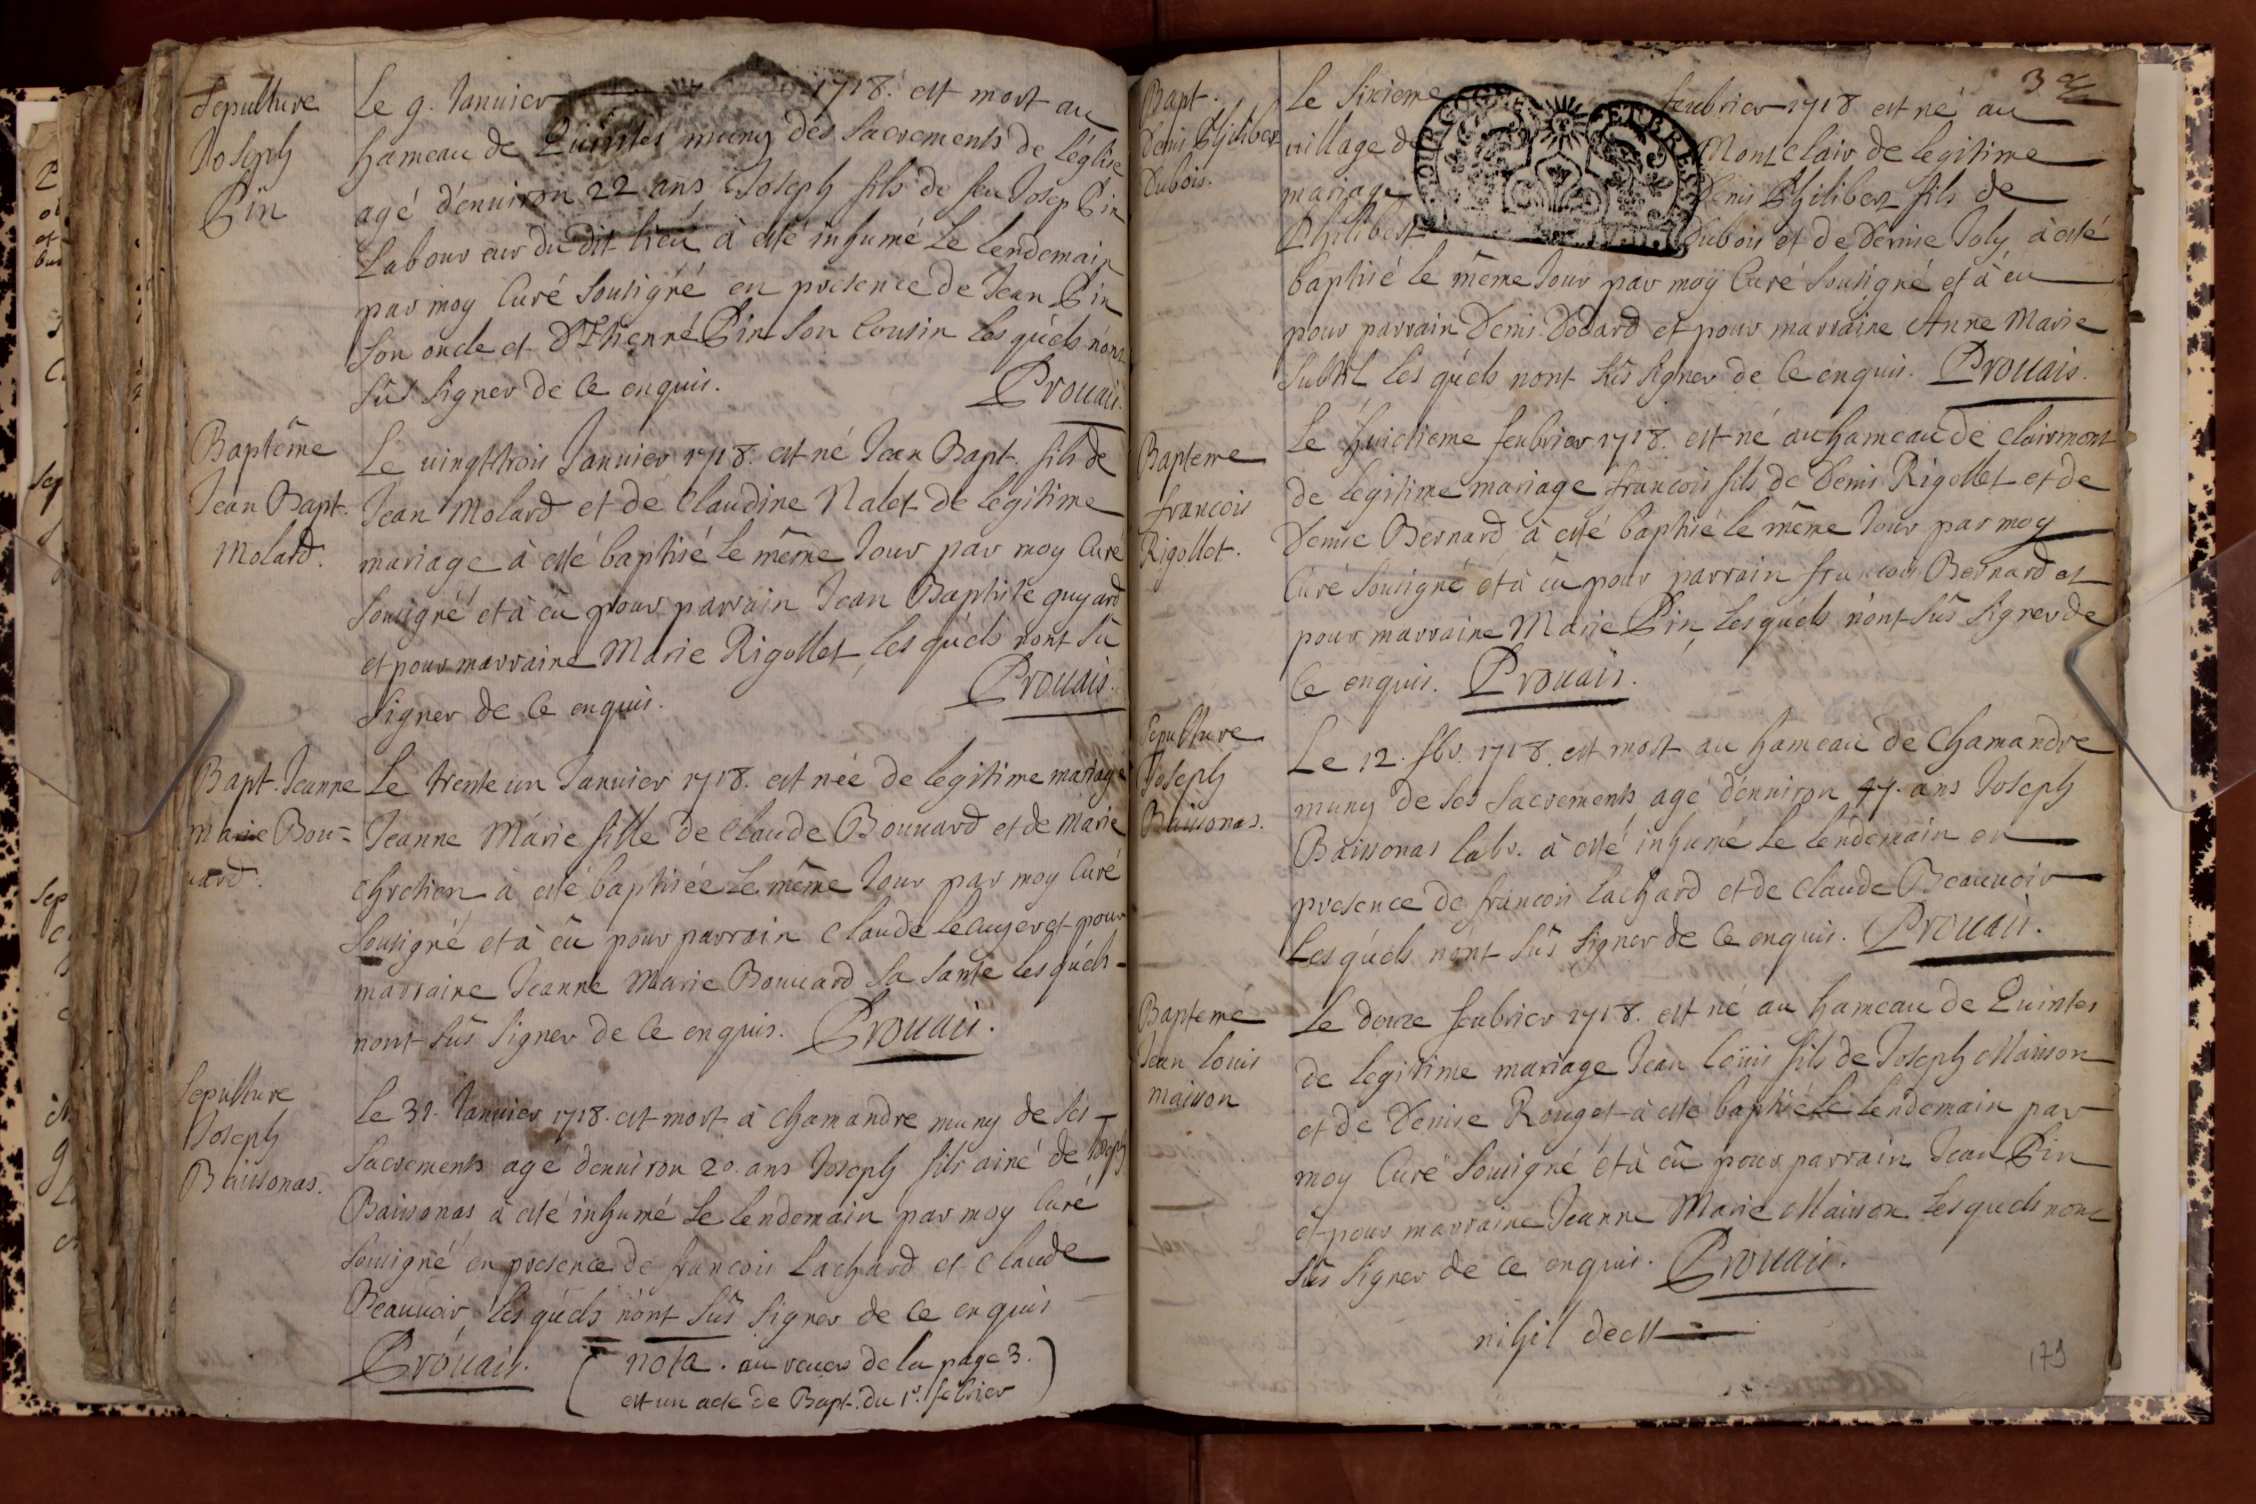 Sepulture
Joseph
Pin
Le 9. Januier 1718. est mort au
hameau de Quintes muny des Sacrements de l'église
agé d'enuiron 22 ans Joseph fils de feu Josep Pin
Laboureur du dit lieu à esté inhumé Le lendemain
par moy Curé Sousigné en présence de Jean Pin
Son oncle et D'Ethienne Pin Son Cousin Les quels n'ont
Sû Signer de Ce enquis. Prouais.
Baptême
Jean Bapt.
Molard.
Le uingttrois Januier 1718. est né Jean Bapt. fils de
Jean Molard et de Claudine Nalet de legitime
mariage à esté baptisé Le même Jour par moy Curé
Sousigné et à eu pour parrain Jean Baptiste guyard
et pour marraine Marie Rigollet, Les quels nont Sû
Signer de Ce enquis. Prouais.
Bapt. Jeanne
Marie Bou=
uard.
Le trente un Januier 1718. est née de legitime mariage
Jeanne Marie fille de Claude Bouuard et de Marie
Chretien à esté baptisée Le même Jour par moy Curé
Sousigné et à eû pour parrain Claude et pour
marraine Jeanne Marie Bouuard Sa tante Les quels
nont Sûs Signer de Ce enquis. Prouais.
Sepulture
Joseph
Baissonas.
Le 31. Januier 1718. est mort à Chamandre muny de Ses
Sacrements agé denuiron 20. ans Joseph fils ainé de Joseph
Baissonas à esté inhumé Le lendemain par moy Curé
Sousigné en presence de francois Lachard et Claude
Beauuoir Les quels n'ont Sûs Signer de Ce enquis
Prouais. (nota. au reuers de la page 3.
est un acte de Bapt. du 1r. febrier)
3
Bapt.
Denis Philibert
Dubois.
Le Sixieme feubrier 1718 est né au
uillage de Montclair de legitime
mariage Denis Philibert fils de
Philibert Dubois et de Denise Joly à esté
baptisé le même Jour par moy Curé Sousigné et à eu
pour parrain Denis Dodard et pour marraine Anne Marie
Subtil Les quels nont Sûs Signer de Ce enquis. Prouais.
Bapteme
francois
Rigollet.
Le huictieme feubrier 1718. est né au hameau de Clairmont
de legitime mariage francois fils de Denis Rigollet et de
Denise Bernard à esté baptisé le même Jour par moy
Curé Sousigné et à eû pour parrain francois Bernard et
pour marraine Marie Pin, Les quels n'ont Sûs Signer de
Ce enquis. Prouais.
Sepulture
Joseph
Baissonas.
Le 12. fbr. 1718. est mort au hameau de Chamandre
muny de Ses Sacrements agé d'enuiron ans Joseph
Baissonas labr. à esté inhumé Le lendemain en
presence de francois Lachard et de Claude Beauuoir
Les quels n'ont Sûs Signer de Ce enquis. Prouais.
Bapteme
Jean Louis
maisson
Le douze feubrier 1718. est né au hameau de Quintes
de legitime mariage Jean Loüis fils de Joseph Maisson
et de Denise Rouget à esté baptisé Le lendemain par
moy Curé Sousigné et à eû pour parrain Jean Pin
et pour marraine Jeanne Marie Maisson Les quels nont
Sûs Signer de Ce enquis. Prouais.
nihil deest
179